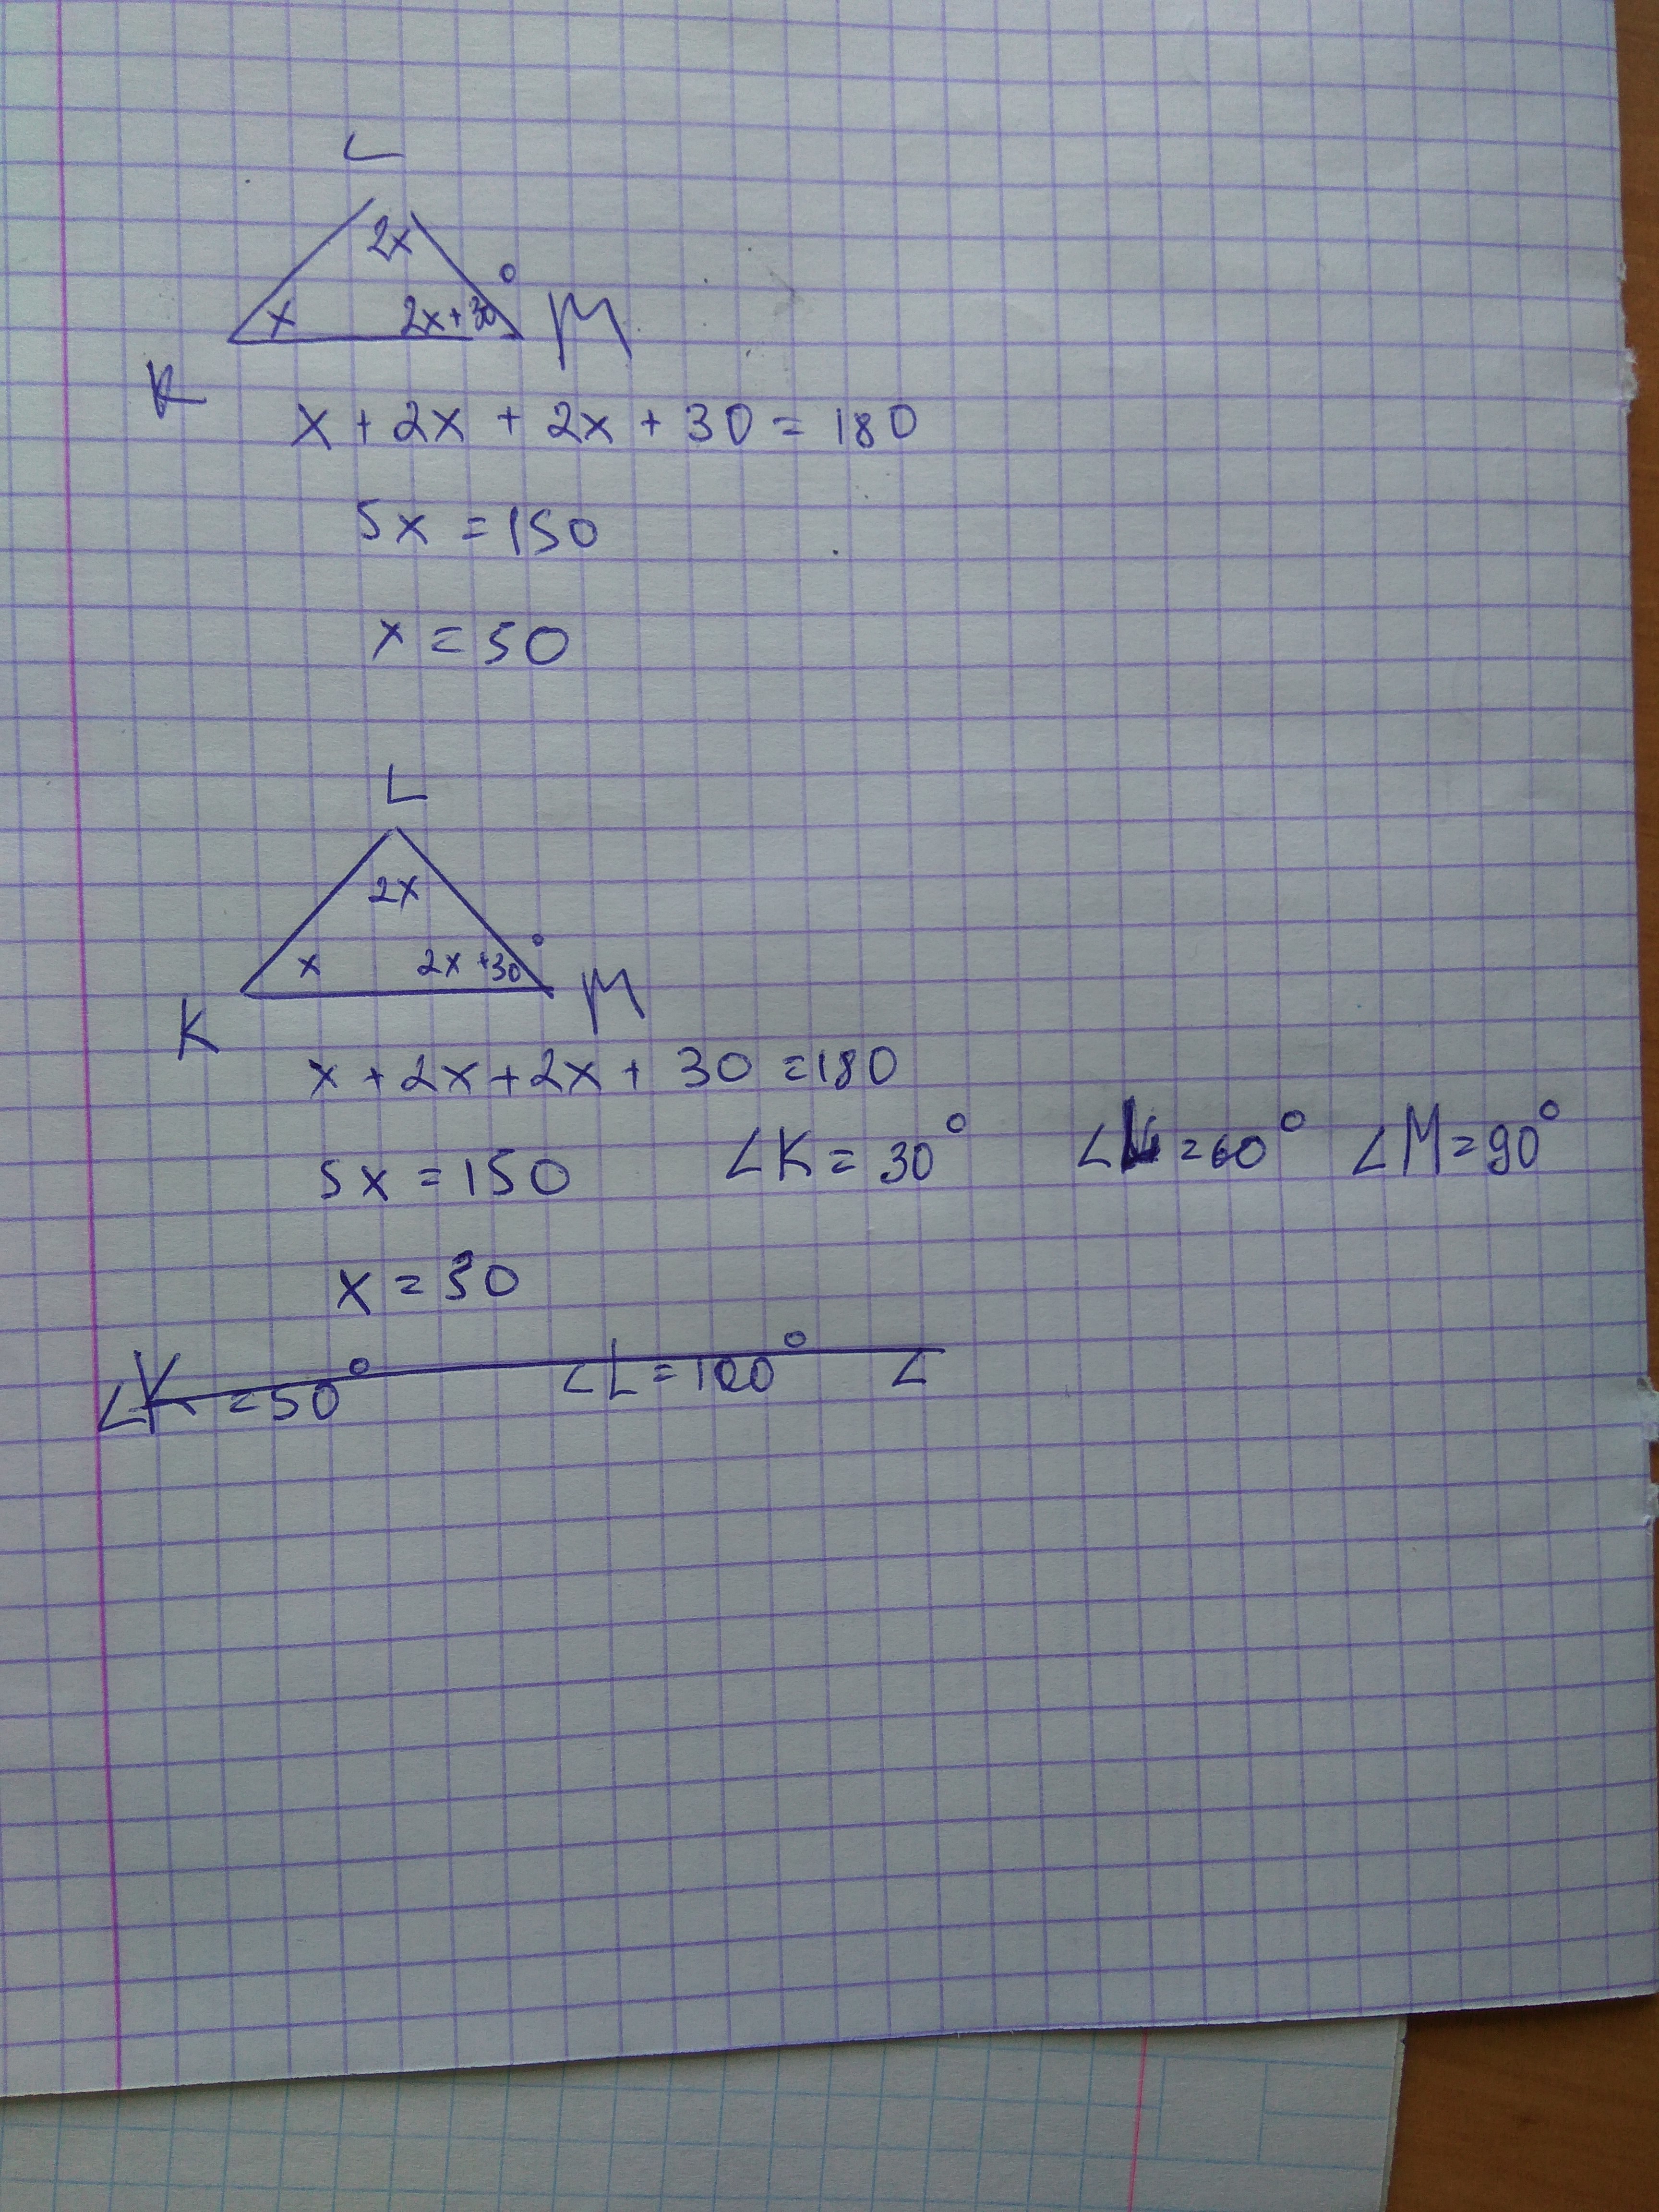 L
2x
x 2x+30° M
K
x + 2x + 2x + 30 = 180
5x = 150
x = 50
L
2x
x 2x+30° M
K
x + 2x + 2x + 30 = 180
∠K = 30° ∠L = 60° ∠M = 90°
5x = 150
x = 30
∠K = 50° ∠L = 100° ∠